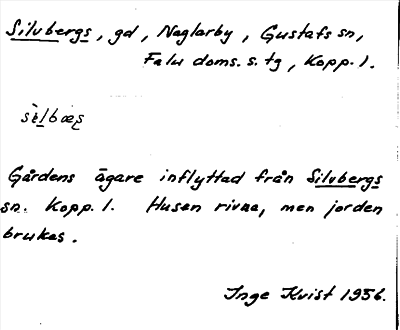 Silvbergs, gd, Naglarby, Gustafs sn,
Falu doms. s. tg, Kopp. l.
sèlbæʂ
Gårdens ägare inflyttad från Silvbergs
sn. Kopp. l. Husen rivna, men jorden
brukas.
Inge Kvist 1956.